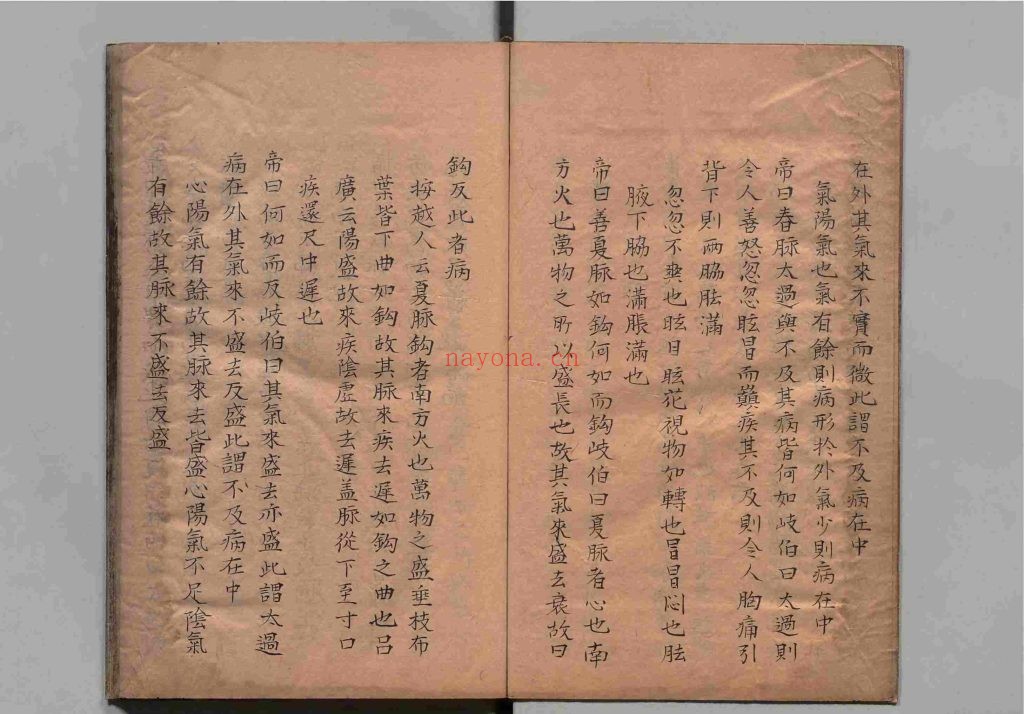 在外其氣來不實而微此謂不及病在中
氣陽氣也氣有餘則病形扵外氣少則病在中
帝曰春脉太過與不及其病皆何如岐伯曰太過則
令人善怒忽忽眩冒而巔疾其不及則令人胸痛引
背下則兩脇胠滿
忽忽不爽也眩目眩花視物如轉也冒冒悶也胠
腋下脇也滿脹滿也
帝曰善夏脉如鈎何如而鈎岐伯曰夏脉者心也南
方火也萬物之所以盛長也故其氣來盛去衰故曰
鈎反此者病
按越人云夏脉鈎者南方火也萬物之盛垂枝布
葉皆下曲如鈎故其脉來疾去遲如鈎之曲也呂
廣云陽盛故來疾陰虛故去遲盖脉從下至寸口
疾還尺中遲也
帝曰何如而反岐伯曰其氣來盛去亦盛此謂太過
病在外其氣來不盛去反盛此謂不及病在中
心陽氣有餘故其脉來去皆盛心陽氣不足陰氣
有餘故其脉來不盛去反盛
nayona.cn